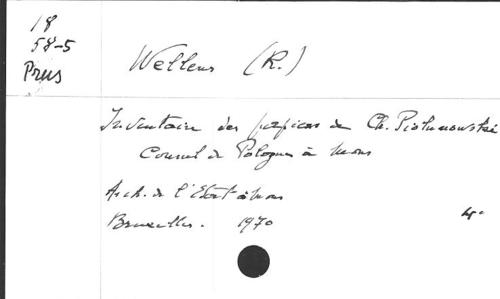 18
58-5
Prus
Wellens (R.)
Inventaire des papiers de Ch. Piotunowski
Consul de Pologne à Mons
Arch. de l'Etat à Mons
Bruxelles. 1970 4°